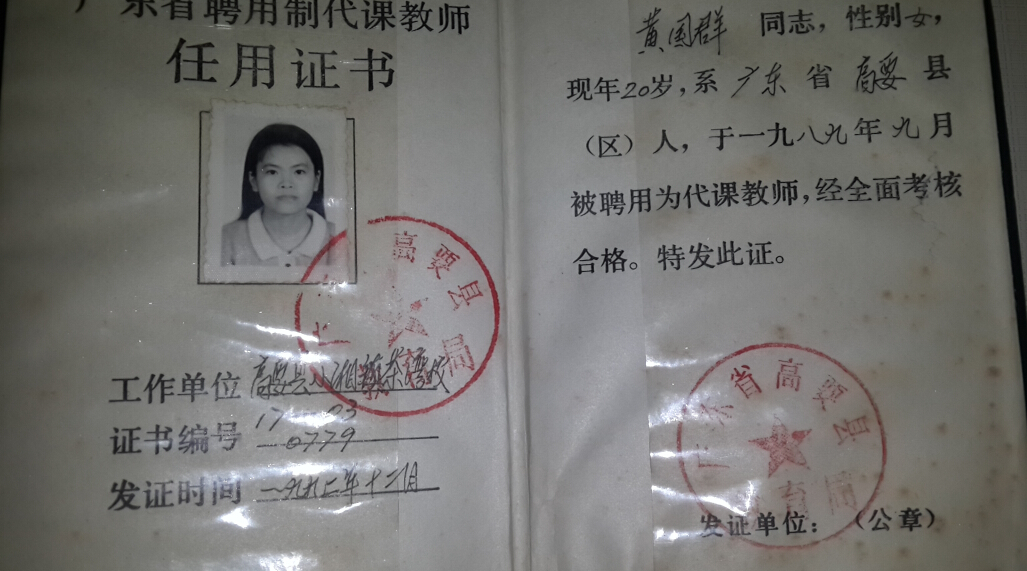 广东省聘用制代课教师
任用证书
广东省高要县教育局
工作单位 高要县小湘镇茶湾校
证书编号 17 03
0779
发证时间 一九九二年十二月
黄国群 同志，性别女，
现年20岁，系广东省高要县
（区）人，于一九八九年九月
被聘用为代课教师，经全面考核
合格。特发此证。
广东省高要县教育局
发证单位：（公章）